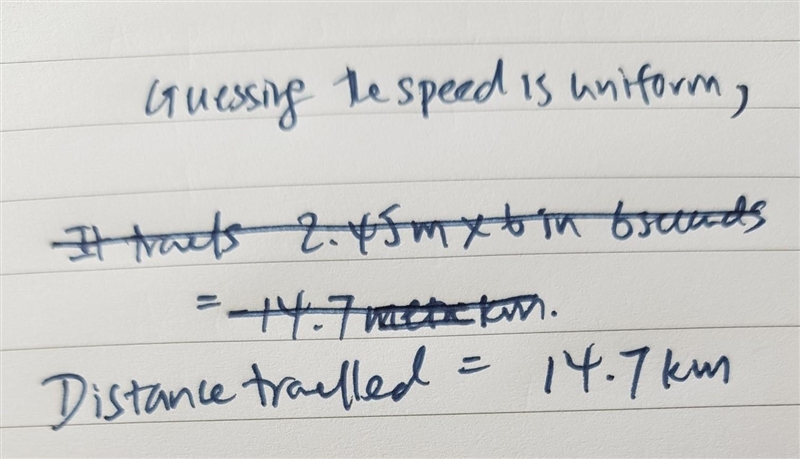 Guessing the speed is uniform,
It travels 2.45m x 6 in 6 seconds
= 14.7 km.
Distance travelled = 14.7 km